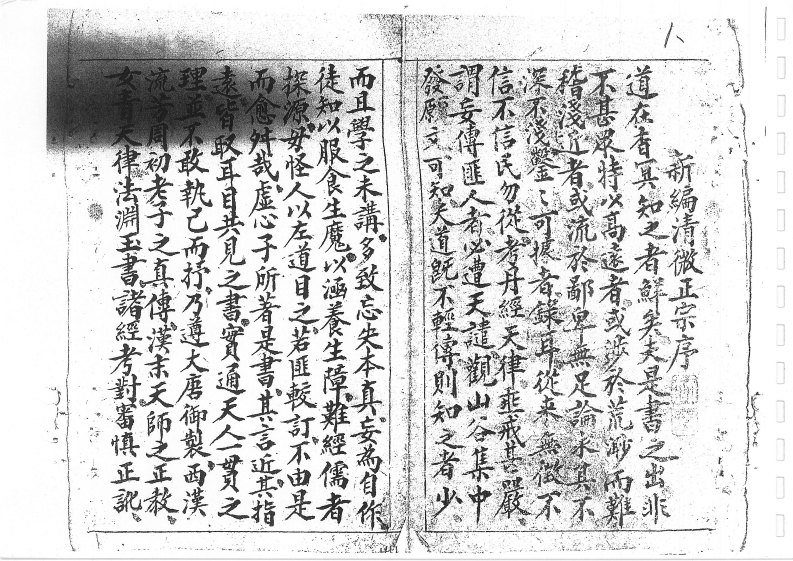 新編清微正宗序
道在杳冥知之者鮮矣夫是書之出非
不甚眾特以高遠者或涉於荒渺而難
稽淺近者或流於鄙卑無足論求其不
深不淺鑿〻可據者錄耳從來無徵不
信不信民勿從考丹經天律垂戒甚嚴
謂妄傳匪人者必遭天譴觀山谷集中
發願文可知夫道既不輕傳則知之者少
而且學之未講多致忘失本真妄為自作
徒知以服食生魔以涵養生障難經儒者
探源毋怪人以左道目之若匪較訂不由是
而愈舛哉虛心子所著是書其言近其指
遠皆取耳目共見之書實通天人一貫之
理並不敢執己而抒乃遵大唐御製西漢
流芳周初老子之真傳漢末天師之正教
女青天律法淵玉書諸經考對審慎正訛